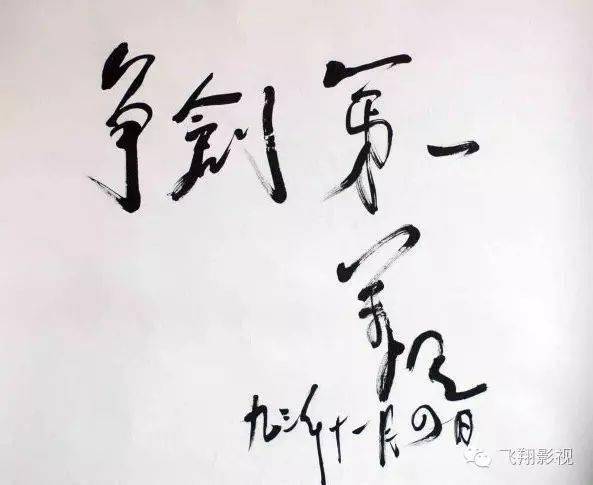 争創第一
九三年十一月四日
飞翔影视